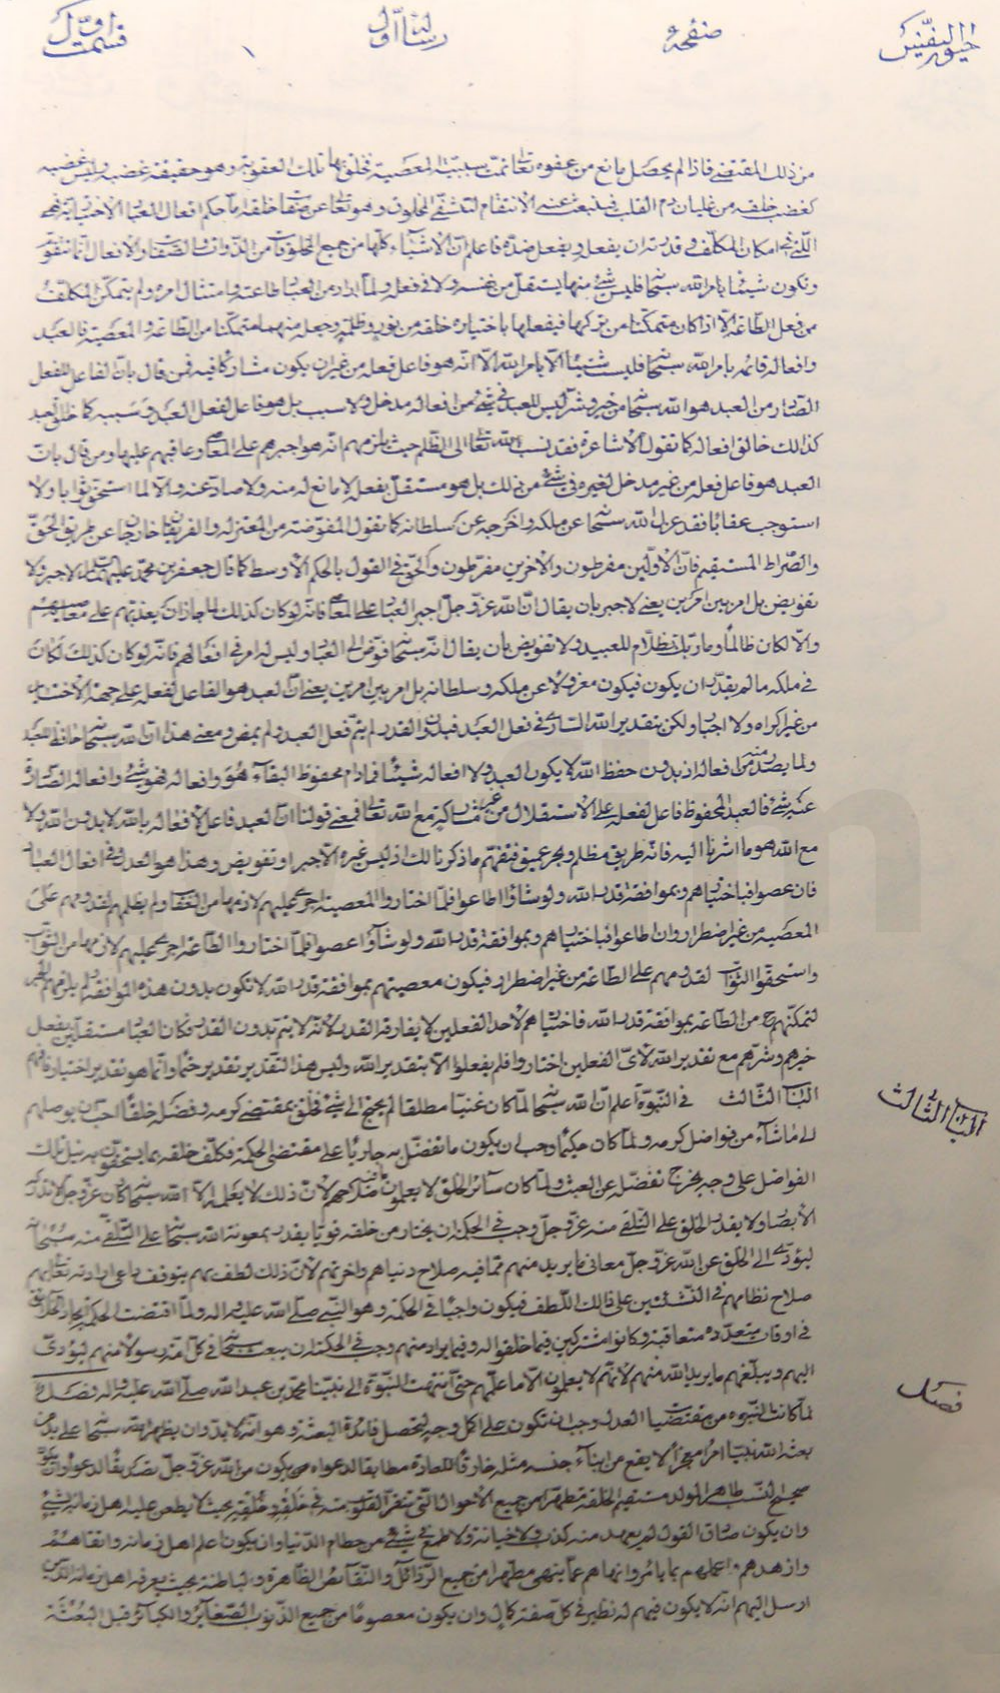 حيوة النفس
صفحه
رسالة اول
قسمت اول
من ذلك المقتضى فاذا لم يحصل مانع من عفوه تعالى تمت سببية المعصية فخلق بها تلك العقوبة وهو حقيقة غضبه وليس غضبه
كغضب خلقه من غليان دم القلب فينبعث عنه الانتقام للتشفى المخلوق وهو تعالى عن صفا خلقه افعال العباد الاختيارية فهى
التى فى امكان المكلف وقدرته ان يفعل ويفعل ضده فاعلم ان الاشياء كلها من جميع المخلوقات من الذوات والصفات والافعال انما تتقوم
وتكون شيئا بامر الله سبحانه فليس شئ منها يستقل من نفسه ولا فى فعله ولما اراد من العباد طاعته وامتثال امره ولم يتمكن المكلف
من فعل الطاعة الا اذا كان متمكنا من تركها فيفعلها باختياره خلقه من نور وظلمة وجعل منهما متمكنا من الطاعة والمعصية فالعبد
وافعاله قائمة بامر الله سبحانه فليست شيئا الا بامر الله الا انه هو فاعل فعله من غير ان يكون مشاركا فيه فمن قال بان الفاعل للفعل
الصادر من العبد هو الله سبحانه من خير وشر ليس للعبد فى شئ من افعاله مدخل ولا سبب بل هو فاعل لفعل العبد وسببه كما خلق العبد
كذلك خالق افعاله كما تقول الاشاعرة فقد نسب الله تعالى الى الظلم حيث يلزمهم انه هو اجبرهم على المعاصى وعاقبهم عليها ومن قال بان
العبد هو فاعل فعله من غير مدخل لغيره فى شئ من ذلك بل هو مستقل بفعله لا مانع له منه ولا صاد عنه والا لما استحق ثوابا ولا
استوجب عقابا فقد عزل الله سبحانه عن ملكه واخرجه عن سلطانه كما تقول المفوضة من المعتزلة والفريقان خارجان عن طريق الحق
والصراط المستقيم فان الاولين مفرطون والاخرين مفرطون والحق فى القول بالحكم الاوسط كما قال جعفر بن محمد عليهما السلام لا جبر ولا
تفويض بل امر بين امرين يعنى لا جبر بان يقال ان الله عز وجل اجبر العباد على المعاصى فانه لو كان كذلك لما جاز ان يعذبهم على معاصيهم
والا لكان ظالما وما ربك بظلام للعبيد ولا تفويض بان يقال انه سبحانه فوض الى العباد وليس له امر فى افعالهم فانه لو كان كذلك لكان
فى ملكه ما لم يقدر ان يكون فيكون معزولا عن ملكه وسلطانه بل امر بين امرين يعنى ان العبد هو الفاعل لفعله على جهة الاختيار
من غير اكراه ولا اجبار ولكن بتقدير الله السارى فى فعل العبد فبدون القدر لم يتم فعل العبد ولم يمض ومعنى هذا ان الله سبحانه حافظ للعبد
ولما يصدر منه من افعاله اذ بدون حفظ الله لا يكون العبد ولا افعاله شيئا فما دام محفوظ البقاء فهو وافعاله فهو شئ وافعاله الصادرة
عنه شئ فالعبد المحفوظ فاعل لفعله على الاستقلال من غير مشاركة مع الله تعالى فمعنى قولنا ان العبد فاعل لافعاله بالله لا بدون الله ولا
مع الله هو ما اشرنا اليه فانه طريق مظلم وبحر عميق فتفهم ما ذكرنا لك اذ ليس غيره الا جبر او تفويض وهذا هو العدل فى افعال العباد
فان عصوا فباختيارهم وبموافقة قدر الله ولو شاؤا اطاعوا فلما اختاروا المعصية اجرى عليهم لازمها من العقاب ولم يظلمهم لقدرتهم على
المعصية من غير اضطرار وان اطاعوا فباختيارهم وبموافقة قدر الله ولو شاؤا عصوا فلما اختاروا الطاعة اجرى عليهم لازمها من الثواب
واستحقوا الثواب لقدرتهم على الطاعة من غير اضطرار فيكون معصيتهم بموافقة قدر الله لا تكون بدون هذه الموافقة لم يلزمهم الجبر
لتمكنهم ح من الطاعة بموافقة قدر الله فاختيارهم لاحد الفعلين لا يفارقه القدر لانه لا يتم بدون القدر فكان العباد مستقلين بفعل
خيرهم وشرهم مع تقدير الله لاى الفعلين اختاروا فلم يفعلوا الا بتقدير الله وليس هذا التقدير تقدير حتما وانما هو تقدير اختيار فافهم
الباب الثالث
الباب الثالث فى النبوة اعلم ان الله سبحانه لما كان غنيا مطلقا لم يحتج الى شئ فخلق بمقتضى كرمه وفضله خلقا احب ان يوصلهم
الى ما شاء من فواضل كرمه ولما كان حكيما وجب ان يكون ما تفضل به جاريا على مقتضى الحكمة فكلف خلقه بما يستحقون به نيل تلك
الفواضل على وجه يخرج تفضله عن العبث ولما كان سائر الخلق لا يعلمون ما فيه صلاحهم لان ذلك لا يعلمه الا الله سبحانه وكان عز وجل لا تدركه
الابصار ولا يقدر الخلق على التلقى منه عز وجل وجب فى الحكمة ان يختار من خلقه قويا يقدر بمعونة الله سبحانه على التلقى منه سبحانه
ليؤدى الى الخلق عن الله عز وجل معانى ما يريد منهم مما فيه صلاح دنياهم واخرتهم لان ذلك لطف بهم يتوقف
صلاح نظامهم فى النشأتين على ذلك اللطف فيكون واجبا فى الحكمة وهو النبى صلى الله عليه واله ولما اقتضت الحكمة ايجاد الخلائق
فى اوقات متعددة متعاقبة وكانوا مشتركين فيما خلقوا له وفيما يراد منهم وجب فى الحكمة ان يبعث سبحانه فى كل امة رسولا منهم ليؤدى
اليهم ويبلغهم ما يريد الله منهم لانهم لا يعلمون الا ما علمهم حتى انتهت النبوة الى نبينا محمد بن عبد الله صلى الله عليه واله فصل
فصل
لما كانت النبوة من مقتضيات العدل وجب ان تكون على اكمل وجه لتحصل فائدة البعثة وهو انه لا بد وان يظهر الله سبحانه على يد من
بعثه الله نبيا امرا معجزا لا يقع من ابناء جنسه مثله خارقا للعادة مطابقا لدعواه يكون من الله عز وجل تصديقا لدعواه وان يكون
صحيح النسب طاهر المولد مستقيم الخلقة مطهرا من جميع الاحوال التى تنفر القلوب منه فى خلقه وخلقه بحيث لا يطعن عليه اهل زمانه بشئ
وان يكون صادق القول لم يعهد منه كذب ولا خيانة ولا طمع فى شئ من حطام الدنيا وان يكون اعلم اهل زمانه واتقاهم
وازهدهم واعملهم بما يامر وانهاهم عما ينهى مطهرا من جميع الرذائل والنقائص الظاهرة والباطنة بحيث يعرفه اهل زمانه الذين
ارسل اليهم انه لا يكون فيهم له نظير فى كل صفة كمال وان يكون معصوما من جميع الذنوب الصغائر والكبائر قبل البعثة